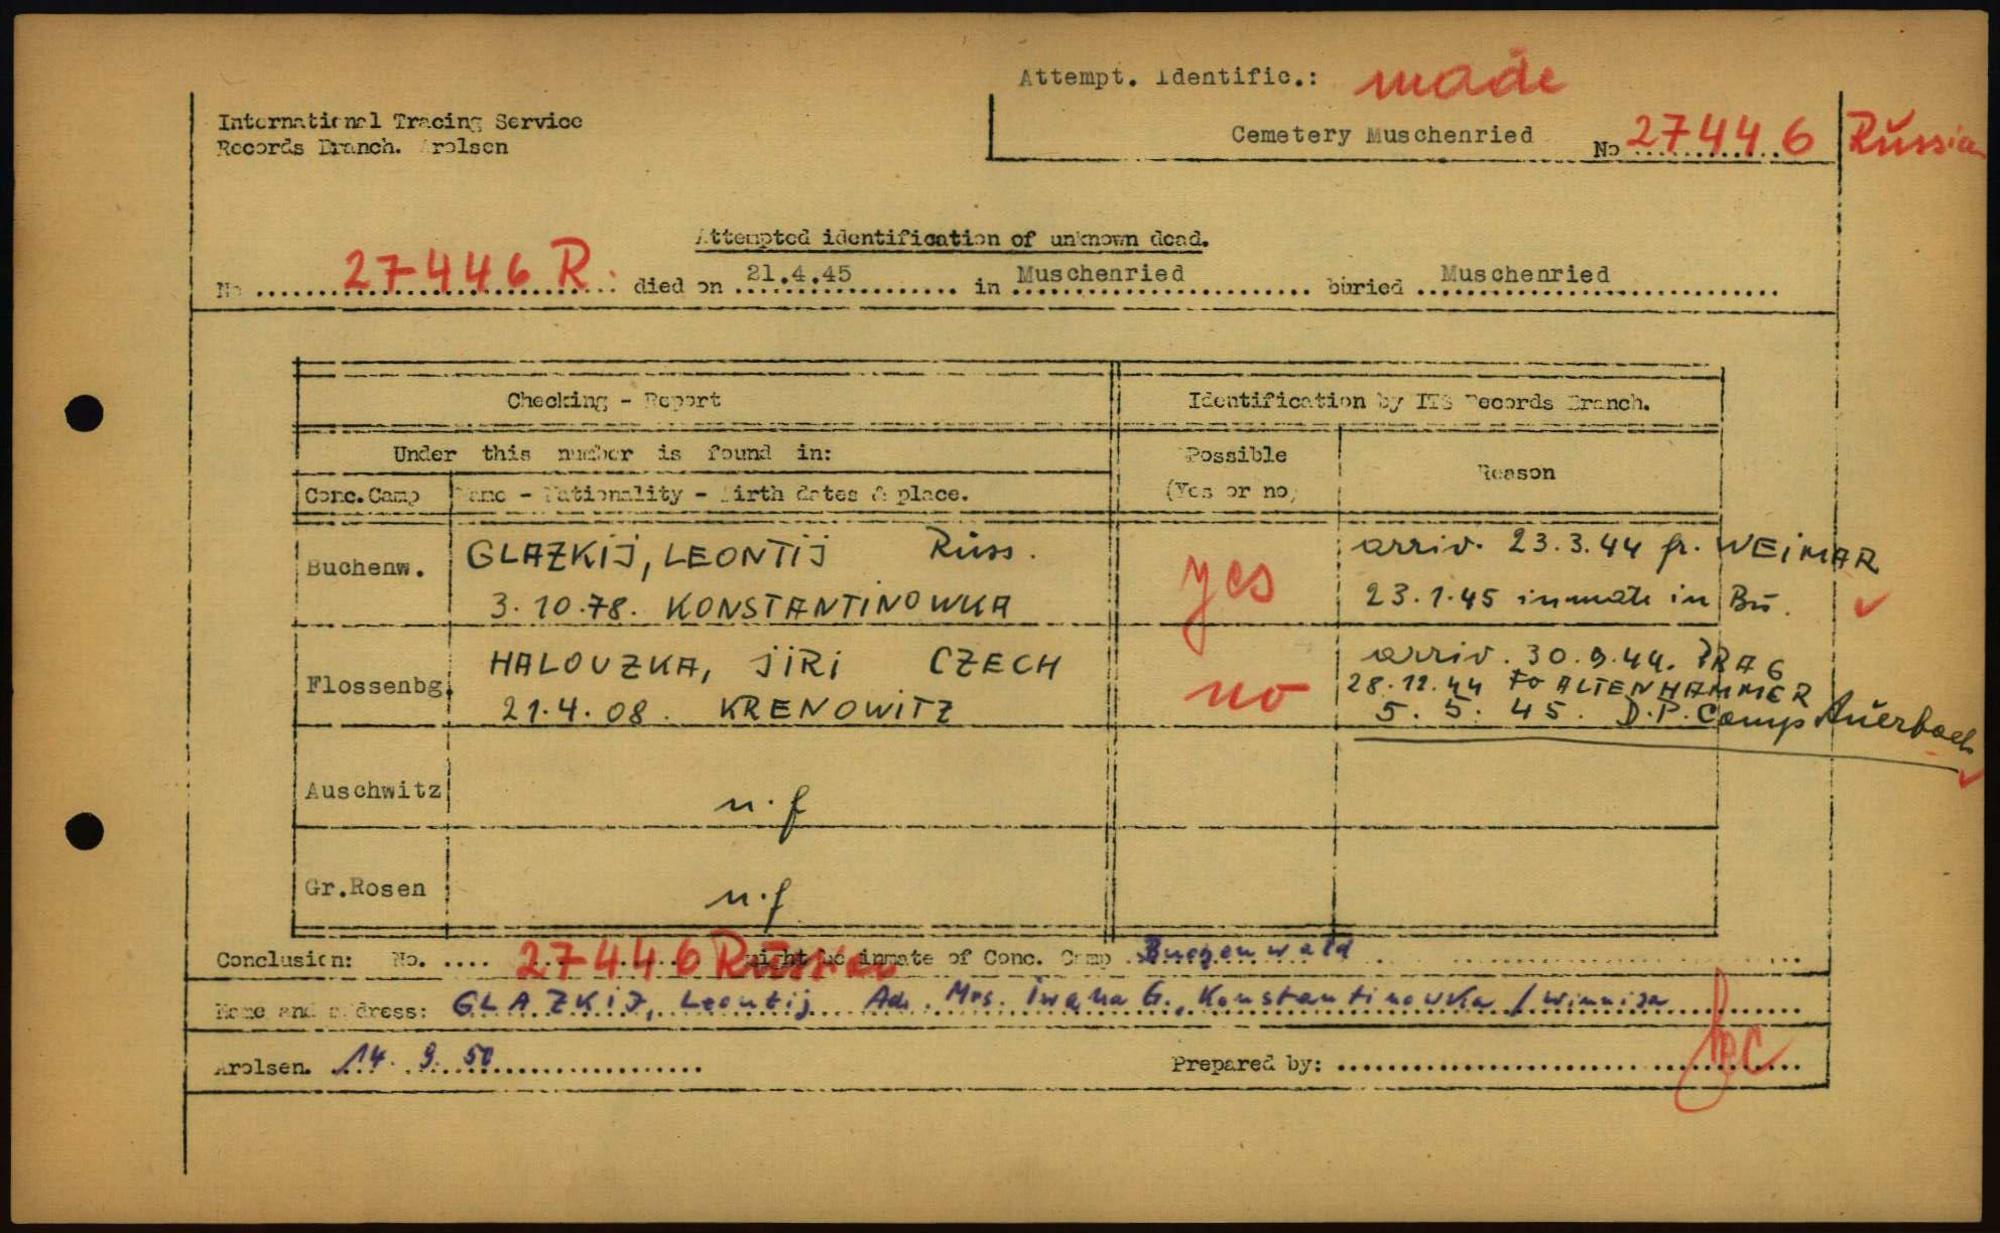 Attempt. Identific.: made
International Tracing Service
Records Branch. Arolsen
Cemetery Muschenried No 27446 Russian
Attempted identification of unknown dead.
No 27446 R. died on 21.4.45 in Muschenried buried Muschenried
Checking - Report Identification by ITS Records Branch.
Under this number is found in: Possible (Yes or no) Reason
Conc.Camp Name - Nationality - Birth dates & place.
Buchenw. GLAZKIJ, LEONTIJ Russ. yes arriv. 23.3.44 fr. WEIMAR
3.10.78. KONSTANTINOWKA 23.1.45 inmate in Bu.
Flossenbg. HALOUZKA, JIRI CZECH no arriv. 30.9.44. PRAG
28.12.44 to ALTENHAMMER
21.4.08. KRENOWITZ 5.5.45. D.P. Camp Auerbach
Auschwitz n.f
Gr.Rosen n.f
Conclusion: No. 27446 Russian might be inmate of Conc. Camp Buchenwald
Name and address: GLAZKIJ, Leontij Ad. Mrs. Iwana G., Konstantinowka / Winniza
Arolsen. 14.9.50 Prepared by: